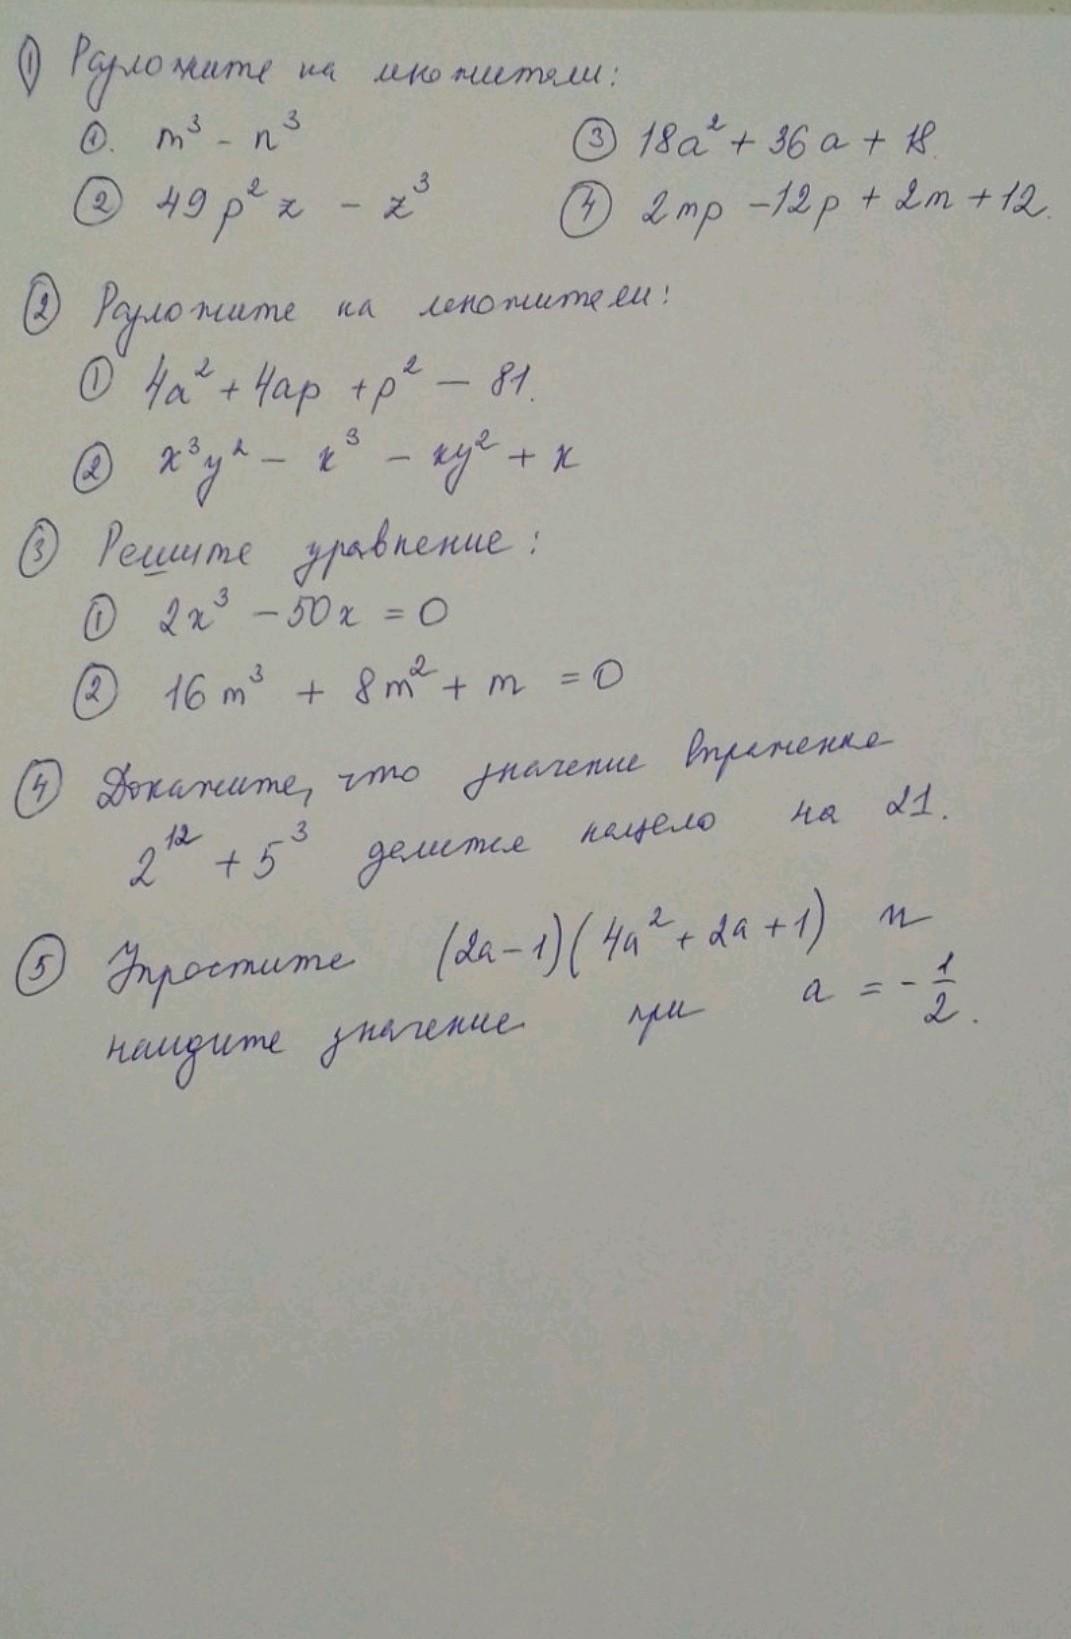 ① Разложите на множители:
①. m³ - n³ ③ 18a² + 36a + 18.
② 49p²z - z³ ④ 2mp - 12p + 2m + 12.
② Разложите на множители:
① 4a² + 4ap + p² - 81.
② x³y² - x³ - xy² + x
③ Решите уравнение:
① 2x³ - 50x = 0
② 16m³ + 8m² + m = 0
④ Докажите, что значение выражение
2¹² + 5³ делится нацело на 21.
⑤ Упростите (2a-1)(4a² + 2a + 1) и
найдите значение при a = -1/2.